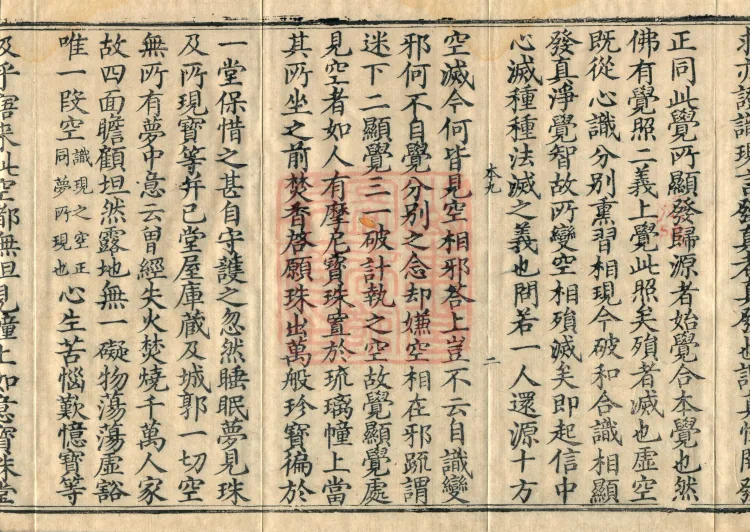 正同此覺所顯發歸源者始覺合本覺也然
佛有覺照二義上覺此照矣殞者滅也虛空
既從心識分別熏習相現今破和合識相顯
發真淨覺智故所變空相殞滅矣即起信中
心滅種種法滅之義也問若一人還源十方
本九
二
空滅今何皆見空相邪答上豈不云自識變
邪何不自覺分別之念却嫌空相在邪疏謂
迷下二顯覺三一破計執之空故覺顯覺處
見空者如人有摩尼寶珠置於琉璃幢上當
其所坐之前焚香啓願珠出萬般珍寶徧於
一堂保惜之甚自守護之忽然睡眠夢見珠
及所現寶等并己堂屋庫藏及城郭一切空
無所有夢中意云曾經失火焚燒千萬人家
故四面瞻顧坦然露地無一礙物蕩蕩虛豁
唯一段空識現之空正同夢所現也心生苦惱歎憶寶等
及乎寤來此空都無但見幢上如意寶珠堂